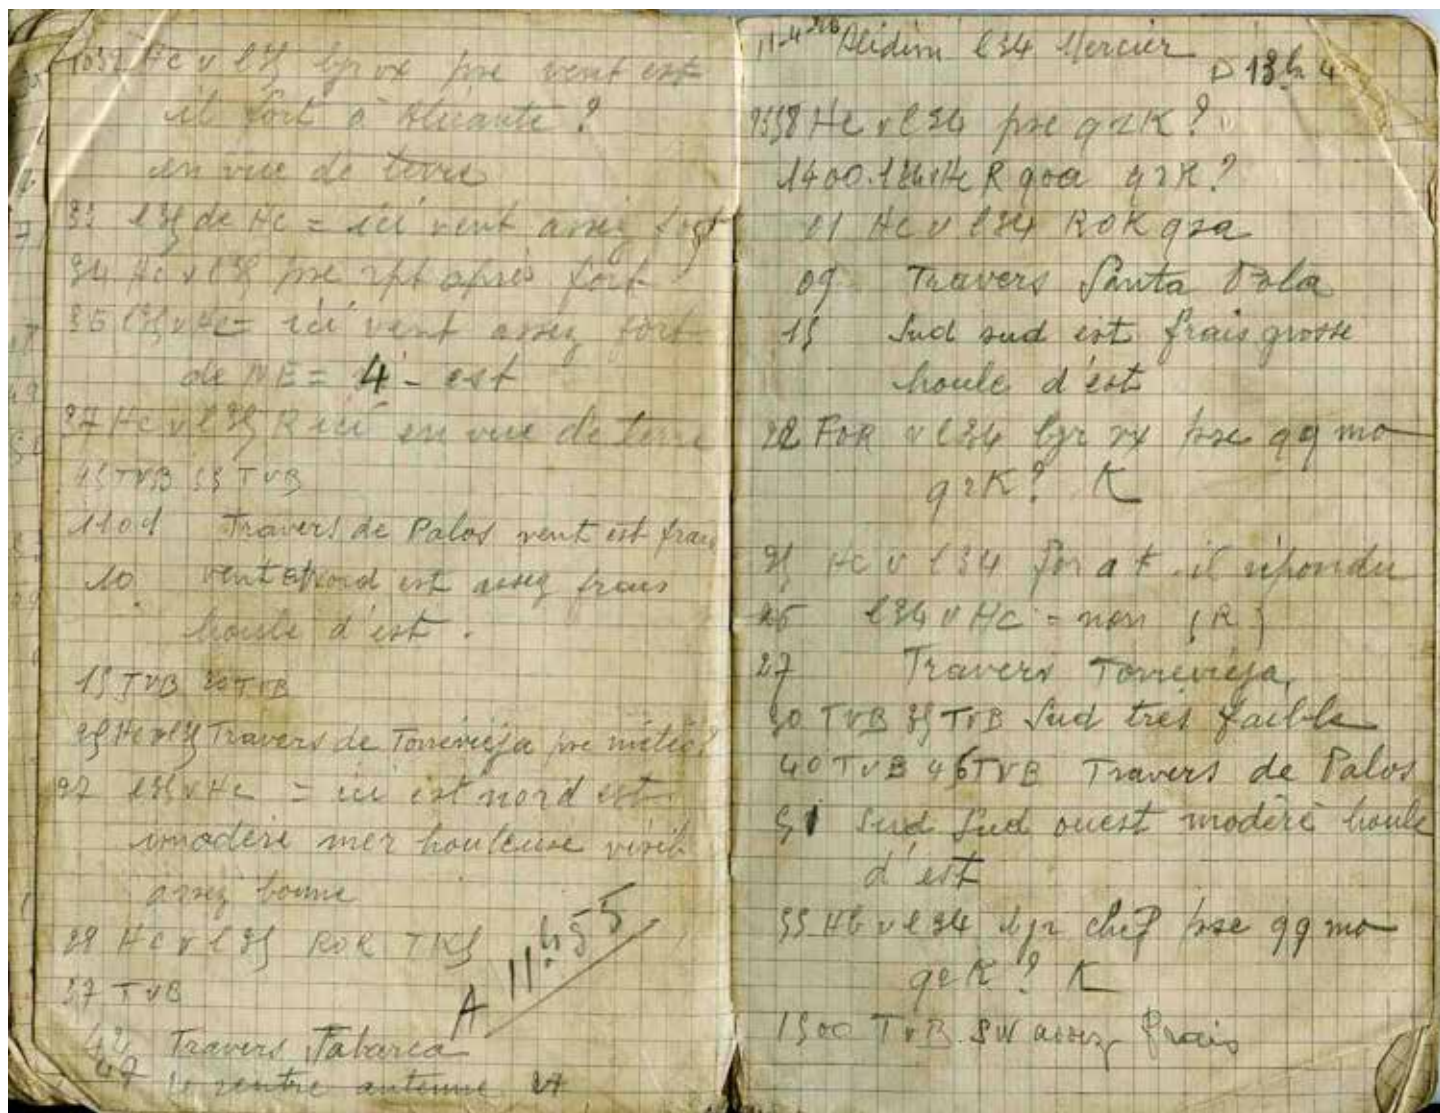 1032 Hc v l35 bjr vx pse vent est
il fort à Alicante ?
en vue de terre
33 l35 de Hc = ici vent assez fort
34 Hc v l35 pse rpt après fort
35 l35 v Hc = ici vent assez fort
de NE = 4 - est
37 Hc v l35 R ici en vue de terre
45 TVB 55 TVB
1101 Travers de Palos vent est frais
10 vent nord est assez frais
houle d'est .
15 TVB 20 TVB
25 Hc v l35 Travers de Torrevieja pse météo ?
27 l35 v Hc = ici est nord est
modéré mer houleuse visib
assez bonne
28 Hc v l35 ROK TKS
37 TVB
42 Travers Tabarca
47 je rentre antenne
A 11h55
11-4-28 l34 Mercier
D 13h 4
1358 Hc v l34 pse qrk ?
1400 l34 v Hc R qoa qrk ?
01 Hc v l34 ROK qsa
09 Travers Santa Pola
15 Sud sud est frais grosse
houle d'est
22 FOR v l34 bjr vx pse qq mo
qrK ? K
25 Hc v l34 for a t . il répondu
26 l34 v Hc = non (R)
27 Travers Torrevieja
30 TVB 35 TVB Sud très faible
40 TVB 46 TVB Travers de Palos
51 Sud Sud ouest modéré houle
d'est
55 Hb v l34 bjr chef pse qq mo
qrK ? K
1500 TVB SW assez frais